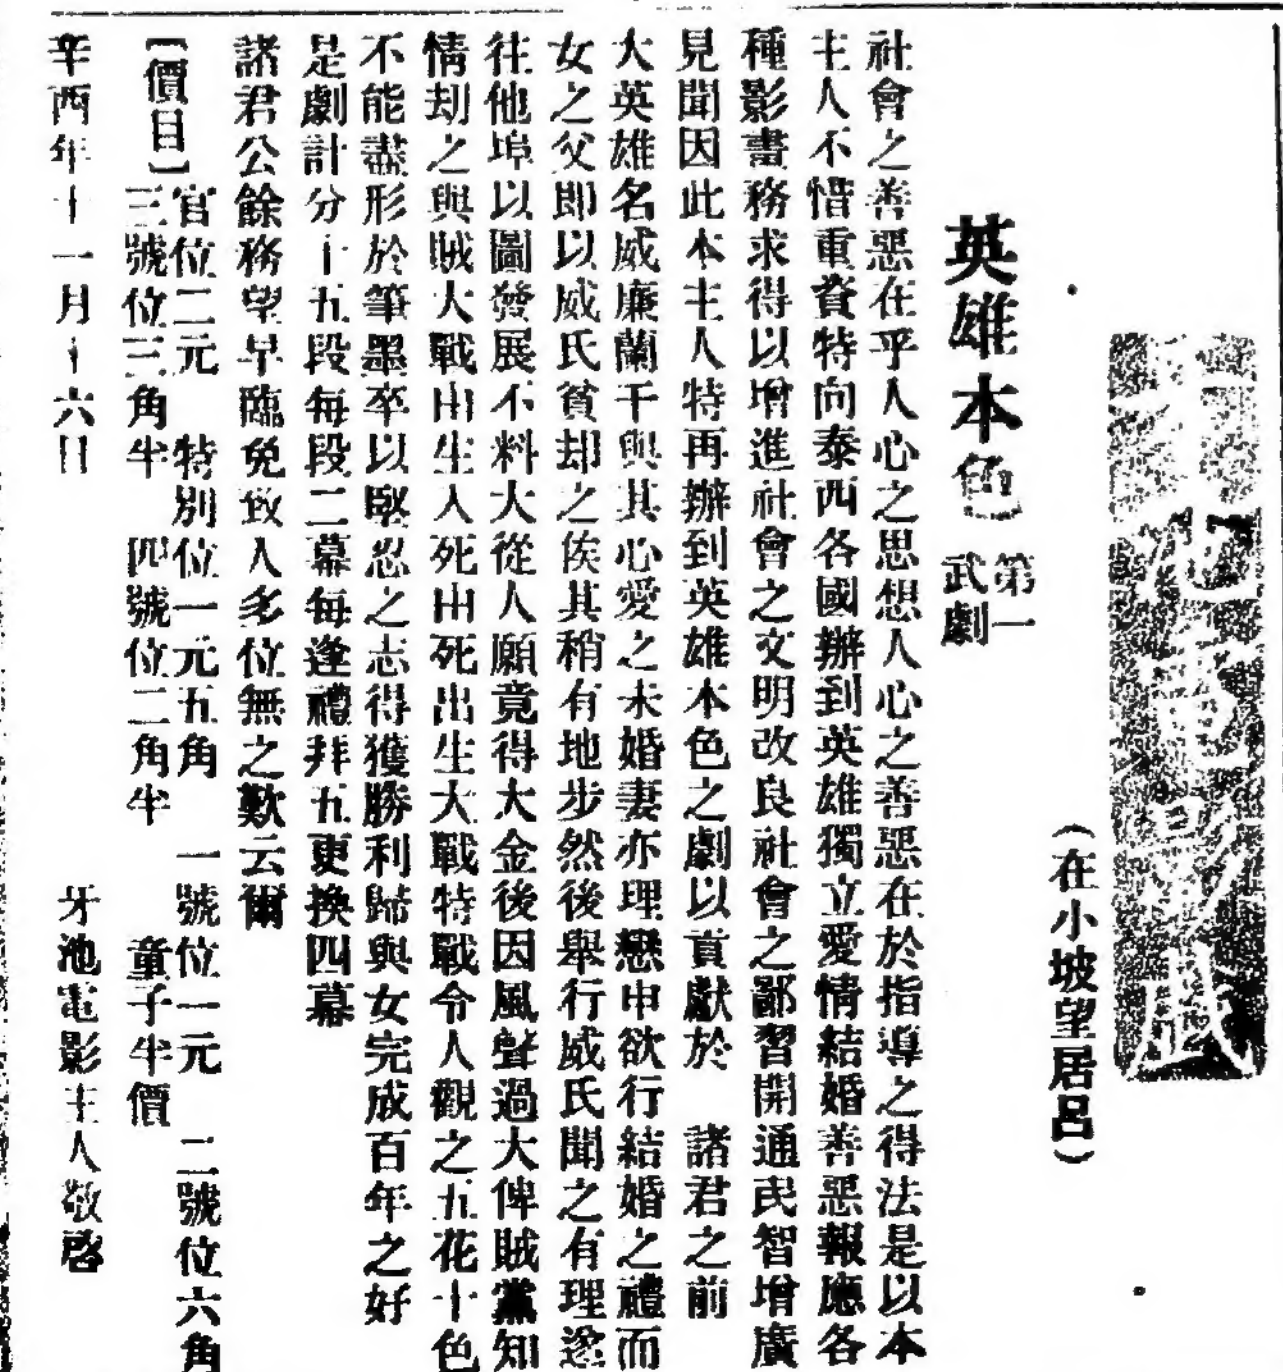 （在小坡望居呂）
英雄本色〕 第一武劇
社會之善惡在乎人心之思想人心之善惡在於指導之得法是以本
主人不惜重資特向泰西各國辦到英雄獨立愛情結婚善惡報應各
種影畫務求得以增進社會之文明改良社會之鄙習開通民智增廣
見聞因此本主人特再辦到英雄本色之劇以貢獻於　諸君之前
大英雄名威廉蘭干與其心愛之未婚妻亦理戀申欲行結婚之禮而
女之父即以威氏貧却之俟其稍有地步然後舉行威氏聞之有理遂
往他埠以圖發展不料大從人願竟得大金後因風聲過大俾賊黨知
情刼之與賊大戰由生入死由死出生大戰特戰令人觀之五花十色
不能盡形於筆墨卒以堅忍之志得獲勝利歸與女完成百年之好
是劇計分十五段每段二幕每逢禮拜五更換四幕
諸君公餘務望早臨免致人多位無之歎云爾
〔價目〕官位二元　特別位一元五角　一號位一元　二號位六角
三號位三角半　四號位二角半　童子半價
辛酉年十一月十六日　牙池電影主人敬啓